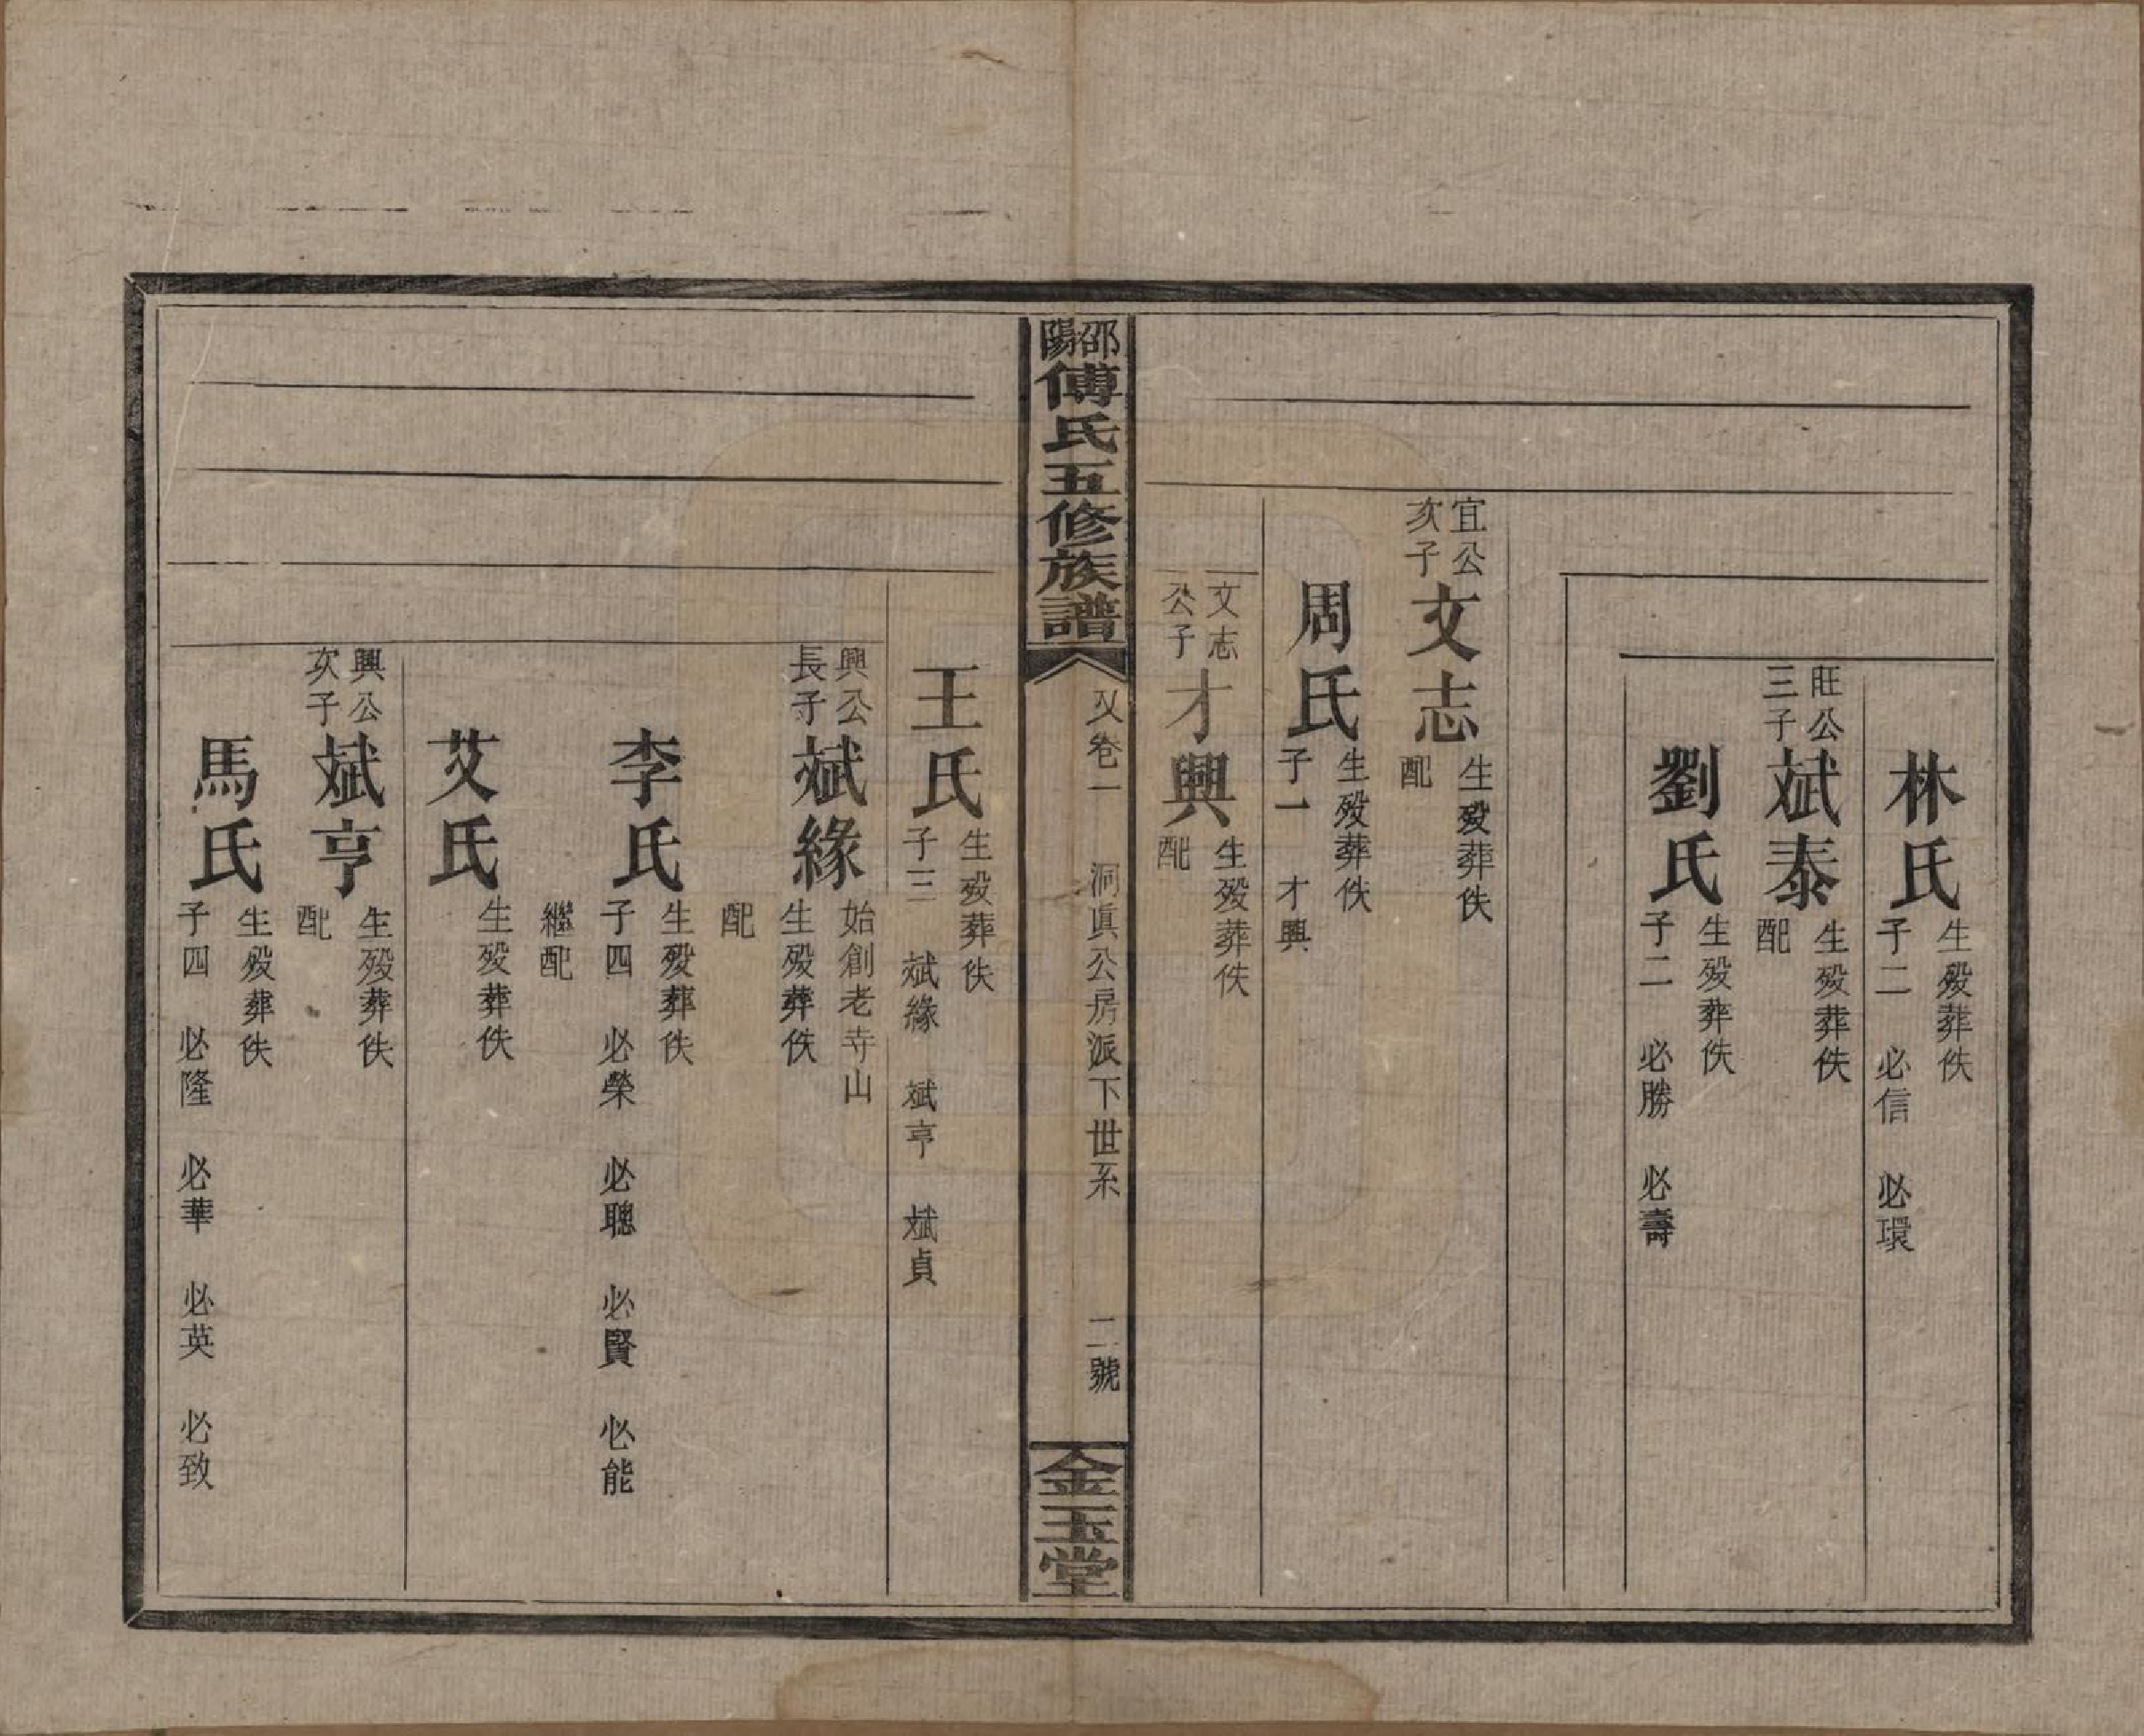 林氏
生歿葬佚
子二 必信 必環
旺公
三子
斌泰
生歿葬佚
配
劉氏
生歿葬佚
子二 必勝 必壽
宜公
次子
文志
生歿葬佚
配
周氏
生歿葬佚
子一 才興
文志
公子
才興
生歿葬佚
配
邵陽傅氏五修族譜
又卷一 洞眞公房派下世系 二號
金玉堂
王氏
生歿葬佚
子三 斌緣 斌亨 斌貞
興公
長子
斌緣
始創老寺山
生歿葬佚
配
李氏
生歿葬佚
子四 必榮 必聰 必賢 必能
繼配
艾氏
生歿葬佚
興公
次子
斌亨
生歿葬佚
配
馬氏
生歿葬佚
子四 必隆 必華 必英 必致